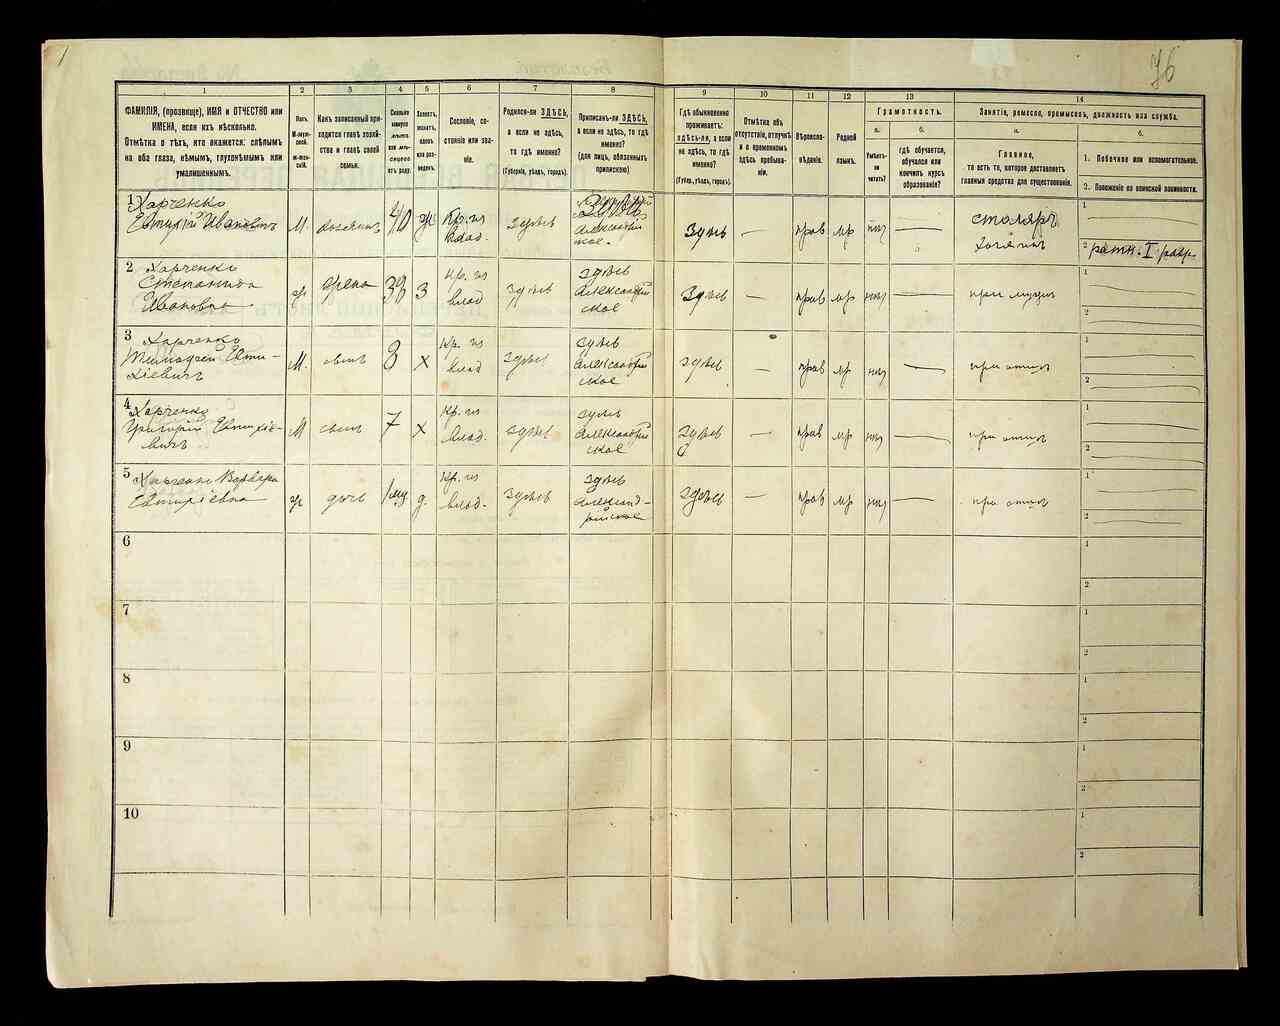 76
1
2
3
4
5
6
7
8
9
10
11
12
13
14
ФАМИЛІЯ, (прозвище), ИМЯ и ОТЧЕСТВО или
ИМЕНА, если ихъ нѣсколько.
Отмѣтка о тѣхъ, кто окажется: слѣпымъ
на оба глаза, нѣмымъ, глухонѣмымъ или
умалишеннымъ.
Полъ.
М-муж-
ской.
Ж-жен-
скій.
Какъ записанный при-
ходится главѣ хозяй-
ства и главѣ своей
семьи.
Сколько
минуло
лѣтъ
или мѣ-
сяцевъ
отъ роду.
Холостъ,
женатъ,
вдовъ
или раз-
веденъ.
Сословіе, со-
стояніе или зва-
ніе.
Родился-ли ЗДѢСЬ,
а если не здѣсь,
то гдѣ именно?
(Губернія, уѣздъ, городъ).
Приписанъ-ли ЗДѢСЬ,
а если не здѣсь, то гдѣ
именно?
(для лицъ, обязанныхъ
припискою)
Гдѣ обыкновенно
проживаетъ:
здѣсь-ли, а если
не здѣсь, то гдѣ
именно?
(Губер., уѣздъ, городъ).
Отмѣтка объ
отсутствіи, отлучкѣ
и о временномъ
здѣсь пребыва-
ніи.
Вѣроиспо-
вѣданіе.
Родной
языкъ.
Грамотность.
а.
Умѣетъ-
ли
читать?
б.
гдѣ обучается,
обучался или
кончилъ курсъ
образованія?
Занятіе, ремесло, промыселъ, должность или служба.
а.
Главное,
то есть то, которое доставляетъ
главныя средства для существованія.
б.
1. Побочное или вспомогательное.
2. Положеніе по воинской повинности.
1
Харченко
Евтихій Ивановичъ
М.
хозяинъ
40
ж
Кр. из
влад.
здѣсь
Александрій
ское.
здѣсь
—
прав
мр
нѣт
столяръ
хозяинъ
1
2 ратн. I разр.
2 Харченко
Степанида
Ивановна
ж
жена
38
з
кр. из
влад
здѣсь
здѣсь
Александрій
ское
здѣсь
—
прав
мр
нѣт
при мужѣ
1
2
3 Харченко
Тимофей Евти-
хіевичъ
М.
сынъ
8
х
Кр. из
влад
здѣсь
здѣсь
Александрій
ское
здѣсь
—
прав
мр
нѣт
при отцѣ
1
2
4 Харченко
Григорій Евтихіе-
вичъ
М
сынъ
7
х
Кр. из
влад.
здѣсь
здѣсь
Александрій
ское
здѣсь
—
прав
мр
нѣт
при отцѣ
1
2
5 Харченко Варвара
Евтихіевна
ж
дочь
д.
Кр. из
влад.
здѣсь
здѣсь
Александ-
рійское
здѣсь
—
прав
мр
нѣт
при отцѣ
1
2
6
1
2
7
1
2
8
1
2
9
1
2
10
1
2